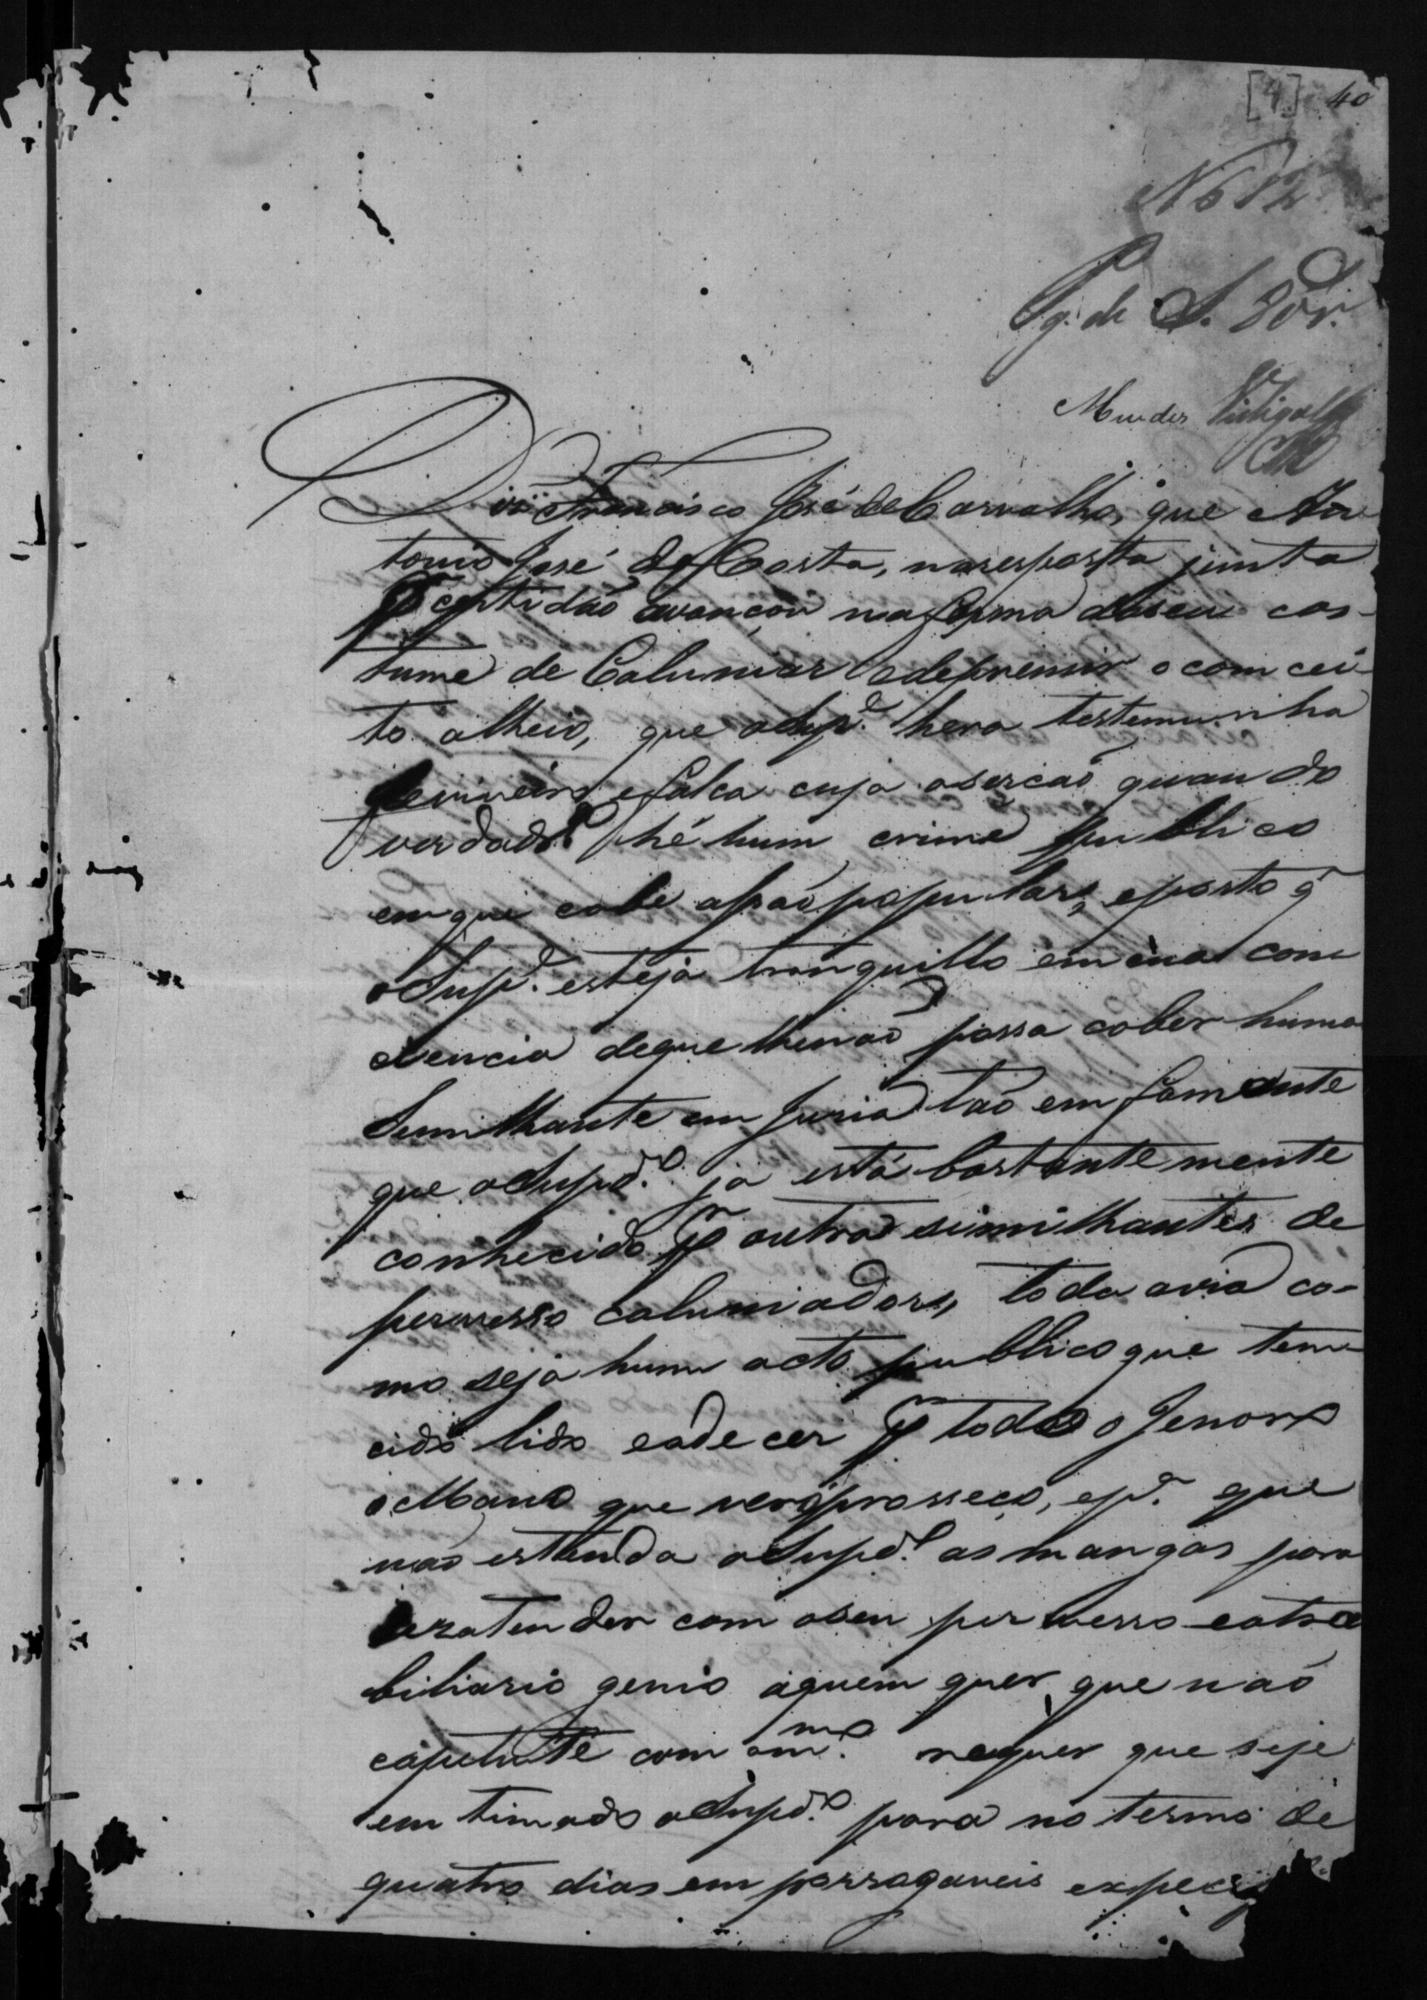 [4] 40
N 612
Pg. de S. 80 r.
Mendes Vidigal
Diz Francisco José de Carvalho, que An
tonio José da Costa, na resposta junta
P certidão avançou na forma do seu cos-
tume de Calumiar e depremir o comcei
to alheio, que o Sup.e hera testemunha
e falca cuja aserção quando
verdadr.a hé hum crime publico
em que cabe ação popular, e posto q
o Sup.e esteja tranquillo em sua con
ciencia de que lhe não possa caber huma
Similhante em juria tão em famante
que o Supd.o ja está bastantemente
conhecido P outras similhantes de
perverso calumiador, toda avia co-
mo seja hum acto publico que tem
cido lido e ade cer P todo o
que e p.a que
não estenda o Supd.o as mangas para
com o seu perverso e atra
biliario genio a quem quer que não
caputule com o m.mo requer que seje
em timado o Supd.o para no termo de
quatro dias em porrogaveis